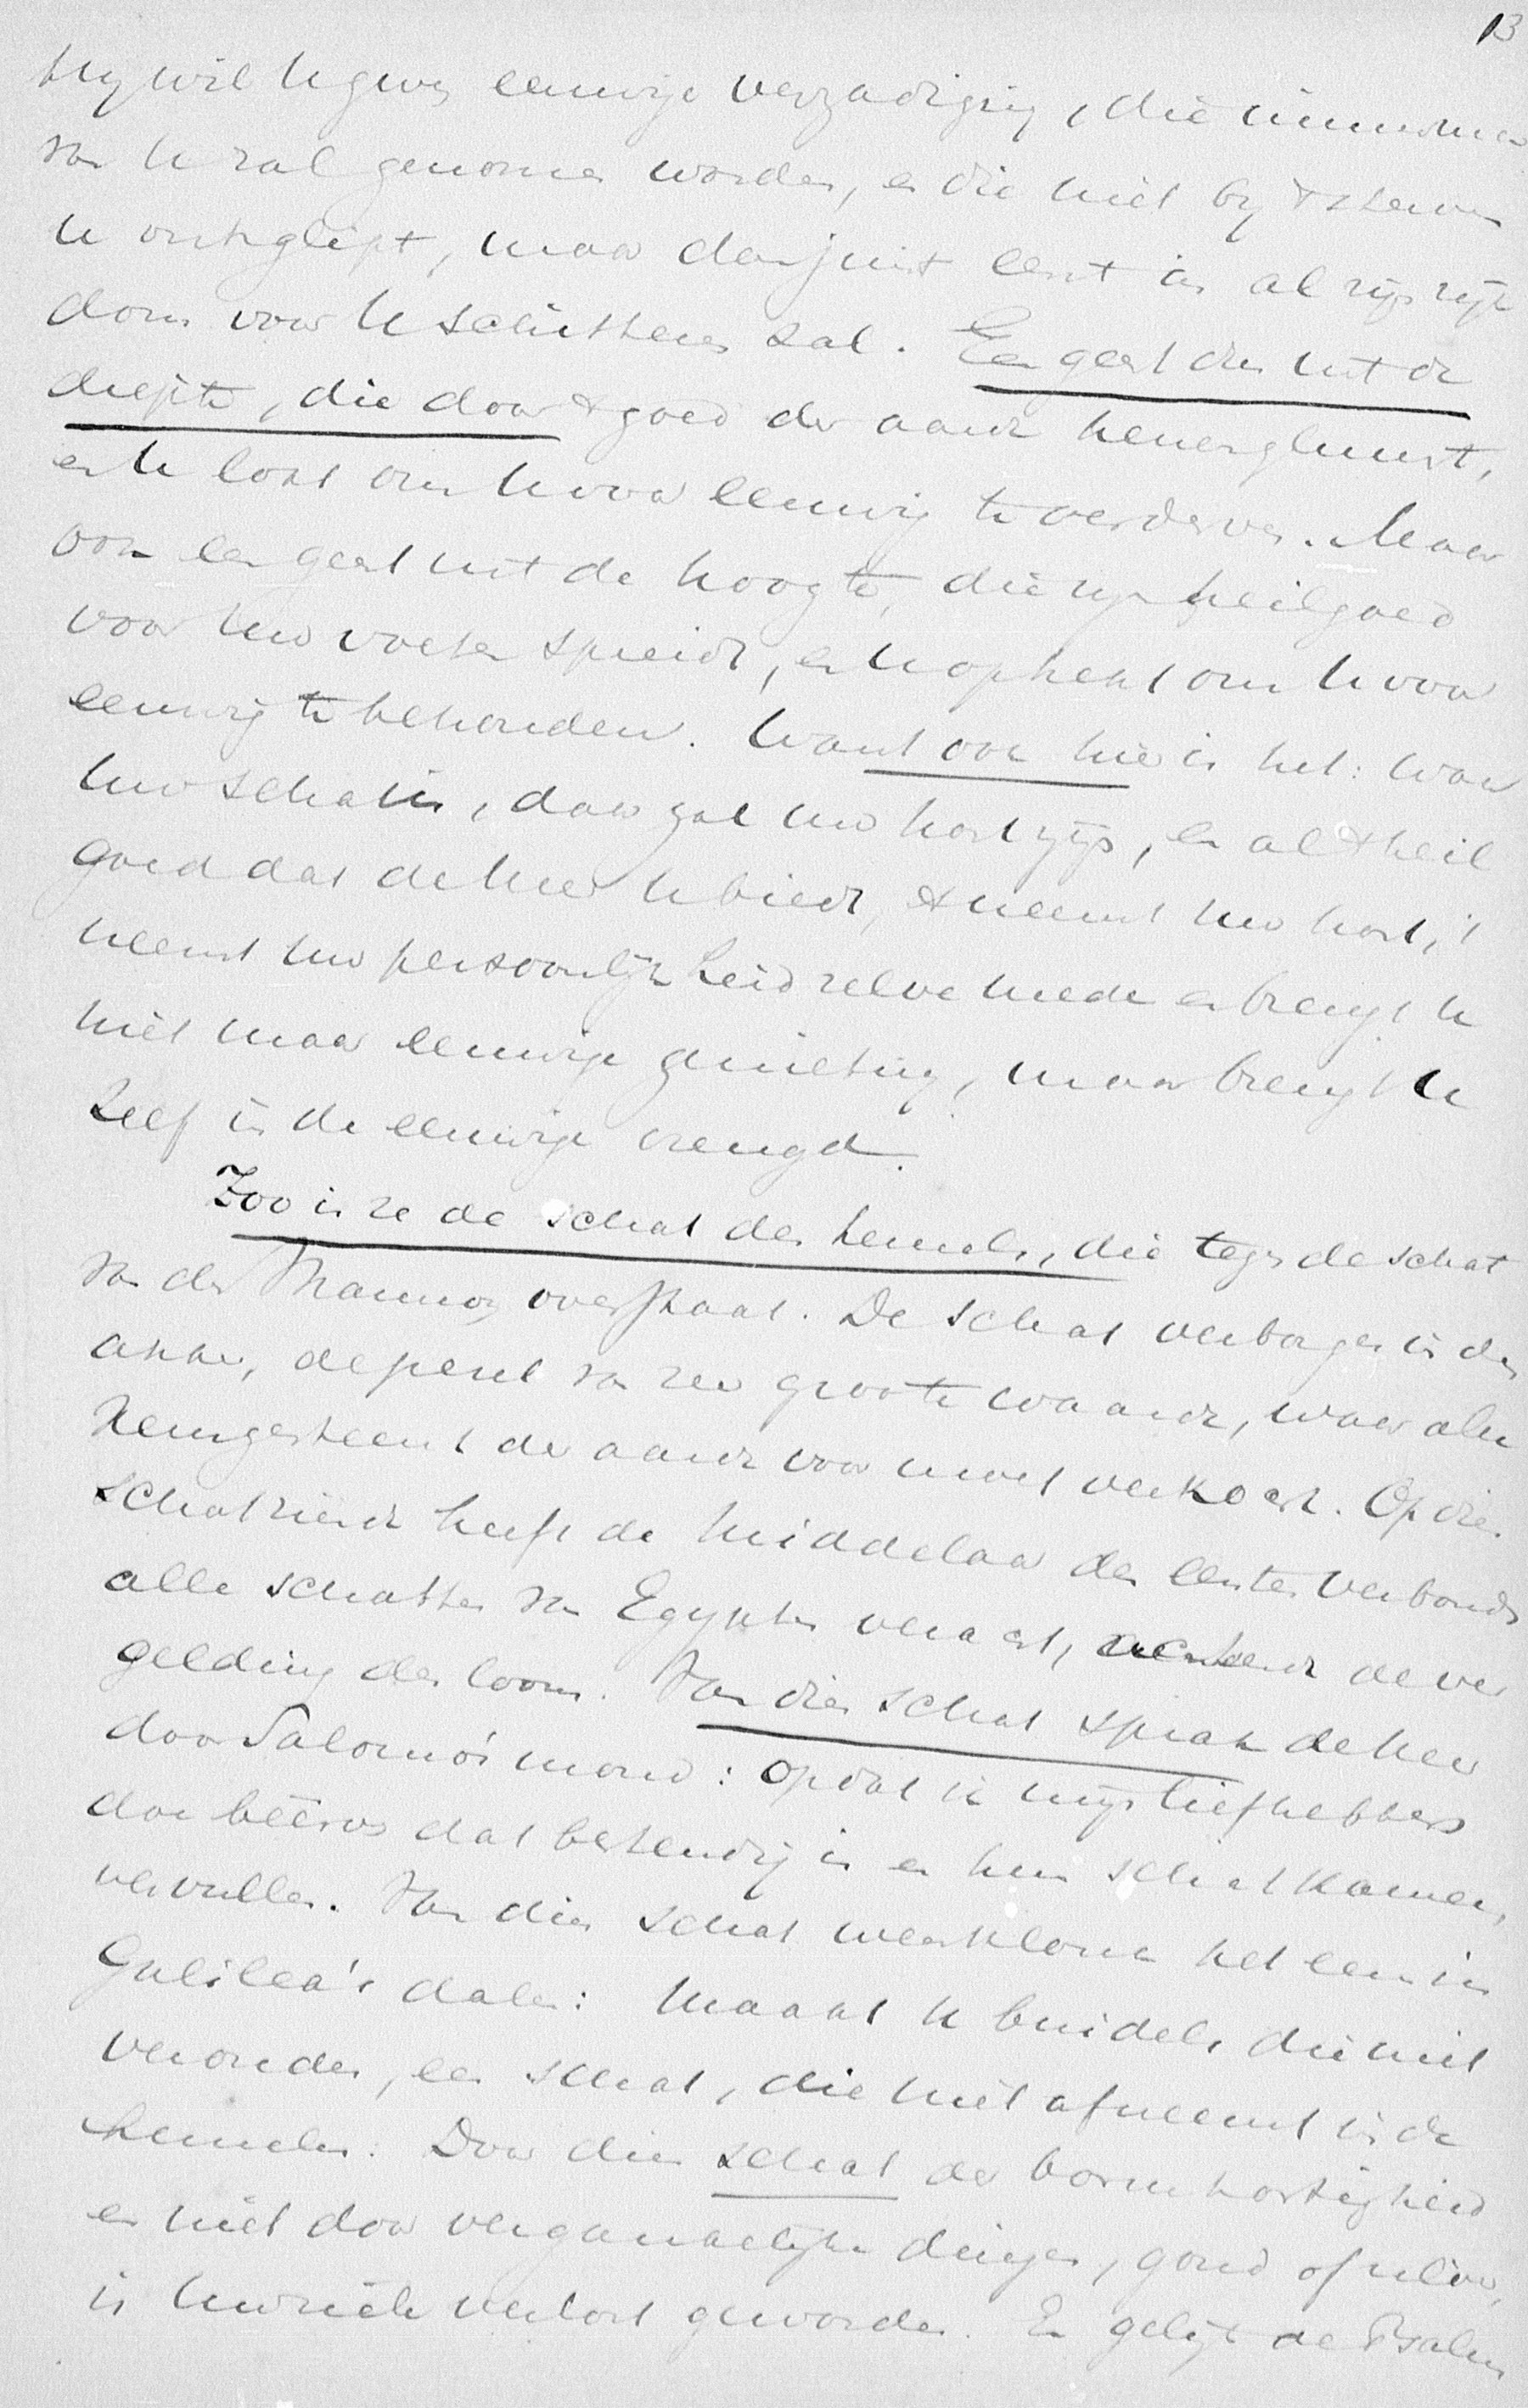 13
Hij wil U geven eeuwige verzadiging, die nimmermeer
van U zal genomen worden, en die niet bij 't sterven
U ontglipt, maar dan juist eerst in al zijn rijk
dom voor U schitteren zal. Een geest dus uit de
diepte, die door 't goed der aarde henengluurt,
en U lokt om U voor eeuwig te verderven. Maar
ook een geest uit de hoogte, die zijn heilgoed
voor Uw voeten spreidt, en U opheft om U voor
eeuwig te behouden. Want ook hier is het: waar
Uw schat is, daar zal Uw hart zijn, en al 't heil
goed dat de Heer U biedt, 't neemt Uw hart, 't
neemt Uw persoonlijkheid zelve mede en brengt U
niet maar eeuwige genieting, maar brengt U
zelf in de eeuwige vreugd.
Zoo is ze de schat des hemels, die tegen de schat
van den Mammon overstaat. De schat verborgen in den
akker, de perel van zeer groote waarde, waar alle
steengesteent der aarde voor moet verkocht. Op dien
schat ziende heeft de Middelaar des eersten Verbonds
alle schatten van Egypte veracht, de ver
gelding des loons. Van dien schat sprak de Heer
door Salomo's mond: opdat ik mijn liefhebbers
doe beërven dat bestendig is en hun schatkameren
vervullen. Van dien schat weerklonk het eens in
Galilea's dalen: Maakt U buidels die niet
verouden, een schat, die niet afneemt in de
hemelen. Door dien schat der barmhartigheid
en niet door vergankelijke dingen, goud of zilver,
is Uw ziele verlost geworden. En gelijk de Psalm